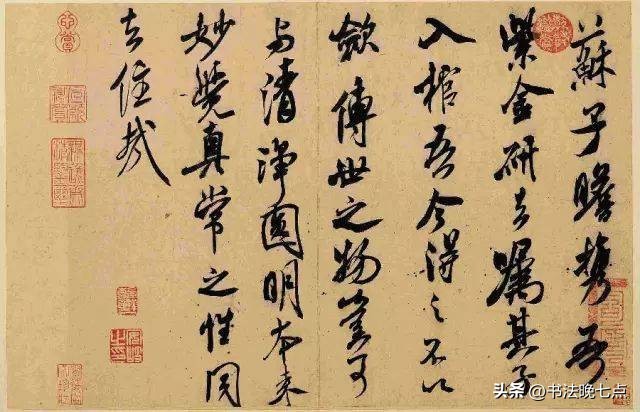 蘇子瞻攜吾
紫金研去嘱其子
入棺吾今得之不以
歛傳世之物豈可
与清淨圓明本来
妙覺真常之性同
去住哉
头条 @书法晚七点